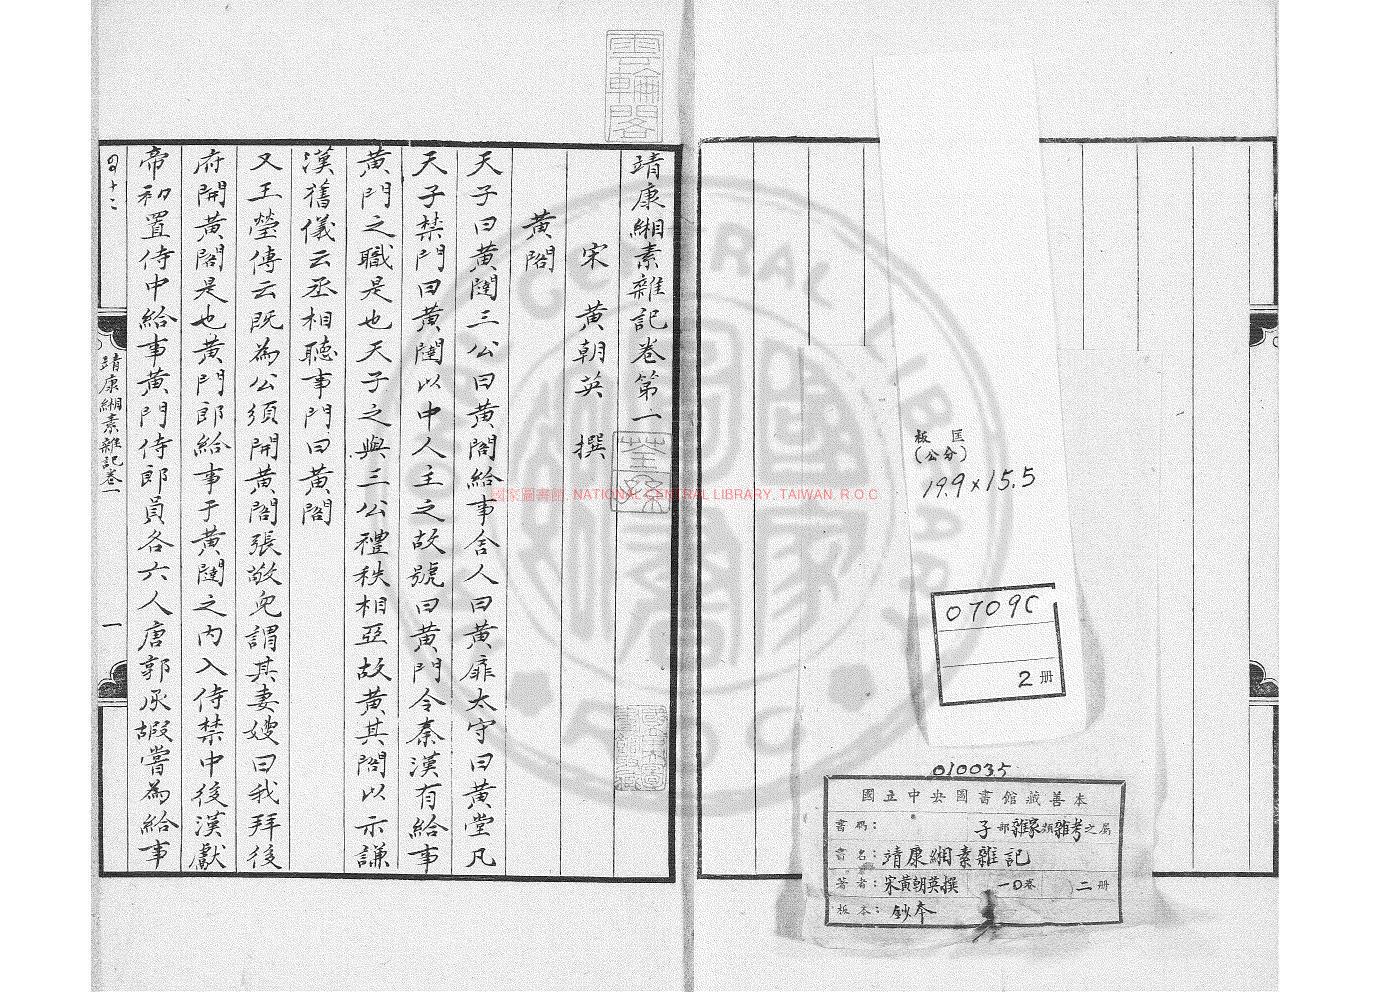 靖康緗素雜記卷第一
宋 黃朝英 撰
黃閣
天子曰黃闥三公曰黃閣給事舍人曰黃扉太守曰黃堂凡
天子禁門曰黃闥以中人主之故號曰黃門令秦漢有給事
黃門之職是也天子之與三公禮秩相亞故黃其閣以示謙
漢舊儀云丞相聽事門曰黃閣
又王瑩傳云既為公須開黃閣張敬兒謂其妻嫂曰我拜後
府開黃閣是也黃門郎給事于黃闥之內入侍禁中後漢獻
帝初置侍中給事黃門侍郎員各六人唐郭承嘏嘗為給事
靖康緗素雜記卷一
一
雲輪閣
荃孫
板匡
(公分)
19.9 x 15.5
0709C
2 册
010035
國立中央圖書館藏善本
書碼： 子部雜家類雜考之屬
書名：靖康緗素雜記
著者：宋黃朝英撰 一0卷 二册
板本：鈔本
國家圖書館 NATIONAL CENTRAL LIBRARY, TAIWAN, R.O.C